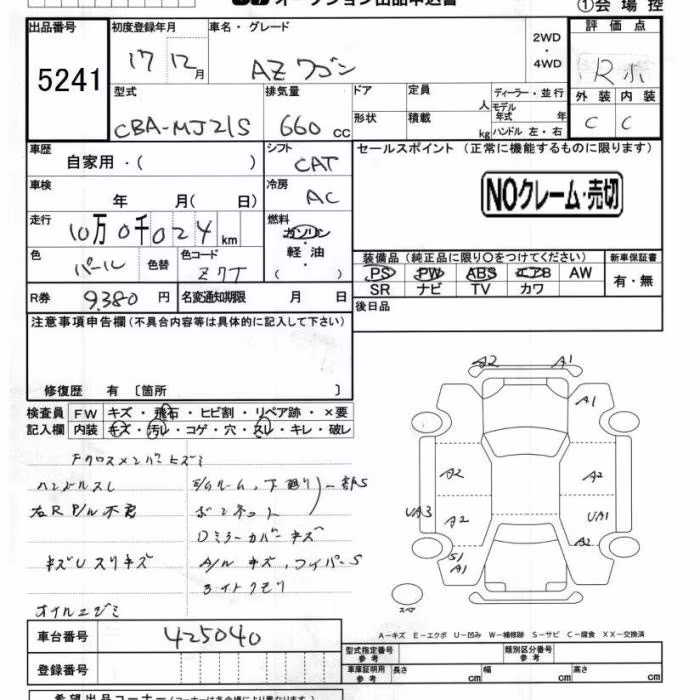 オークション出品申込書
①会場控
出品番号 初度登録年月 車名・グレード 2WD・4WD 評価点
5241 17 12月 AZワゴン R
外装 内装
C C
型式 排気量 ドア 定員 人 ディーラー・並行
CBA-MJ21S 660cc 形状 積載 kg モデル年式 年 ハンドル 左・右
車歴 シフト セールスポイント (正常に機能するものに限ります)
自家用・( ) CAT
車検 冷房 NOクレーム・売切
年 月( 日) AC
走行 燃料
10万0千024km ガソリン・軽油( )
色 色替 色コード 装備品 (純正品に限り○をつけてください) 新車保証書
パール Z7T PS PW ABS エアB AW 有・無
SR ナビ TV カワ
R券 9380円 名変通知期限 月 日 後日品
注意事項申告欄(不具合内容等は具体的に記入して下さい)
修復歴 有 〔箇所 〕
検査員記入欄 FW キズ・飛石・ヒビ割・リペア跡・×要
内装 キズ・汚レ・コゲ・穴・スレ・キレ・破レ
Fクロスメンバヒズミ
ハンドルスレ E/Gルーム、下廻り一部S
右R P/W不良 ボンネット
Dミラーカバーキズ
キズUスリキズ A/Wキズ、ワイパーS
ライトクモリ
オイルニジミ
A2 A1
A1
A2 A2
UA3 A2 UA1
S1 A2
A1
スペア
A-キズ E-エクボ U-凹み W-補修跡 S-サビ C-腐食 XX-交換済
車台番号 425040
型式指定番号 参考 類別区分番号 参考
登録番号 車庫証明用 参考 長さ cm 幅 cm 高さ cm
希望出品コーナー